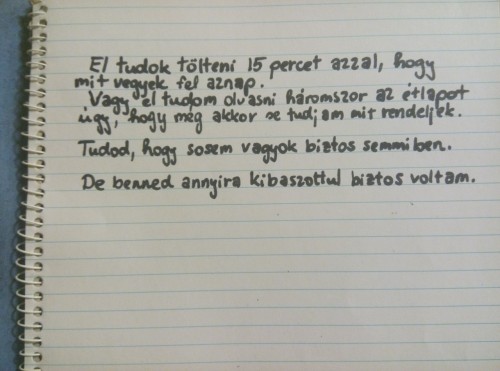 El tudok tölteni 15 percet azzal, hogy
mit vegyek fel aznap.
Vagy el tudom olvasni háromszor az étlapot
úgy, hogy még akkor se tudjam mit rendeljek.
Tudod, hogy sosem vagyok biztos semmiben.
De benned annyira kibaszottul biztos voltam.